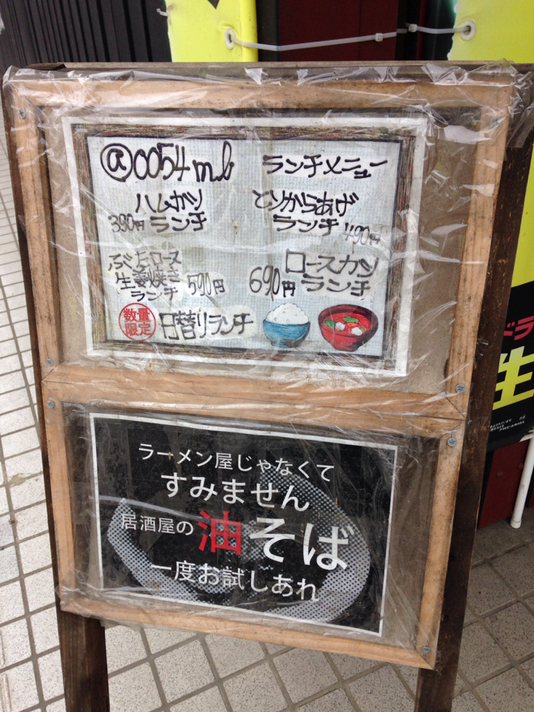 @0054 m.b ランチメニュー
ハムカツ
390円 ランチ
とりからあげ
ランチ 490円
ぶたロース
生姜焼き
ランチ 590円
ロースカツ
690円 ランチ
数量
限定
日替りランチ
ラーメン屋じゃなくて
すみません
居酒屋の油そば
一度お試しあれ
ドラ
生